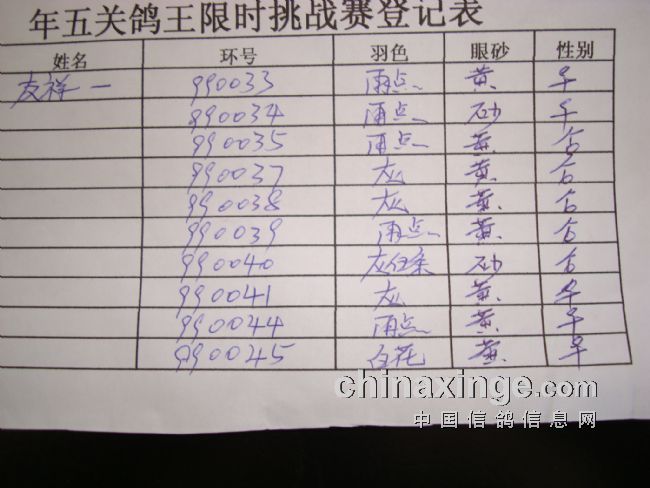 年五关鸽王限时挑战赛登记表
姓名 环号 羽色 眼砂 性别
友祥一 990033 雨点 黄
990034 雨点 砂
990035 雨点 黄
990037 灰 黄
990038 灰 黄
990039 雨点 黄
990040 砂
990041 灰 黄
990044 雨点 黄
990045 白花 黄
chinaxinge.com
中国信鸽信息网